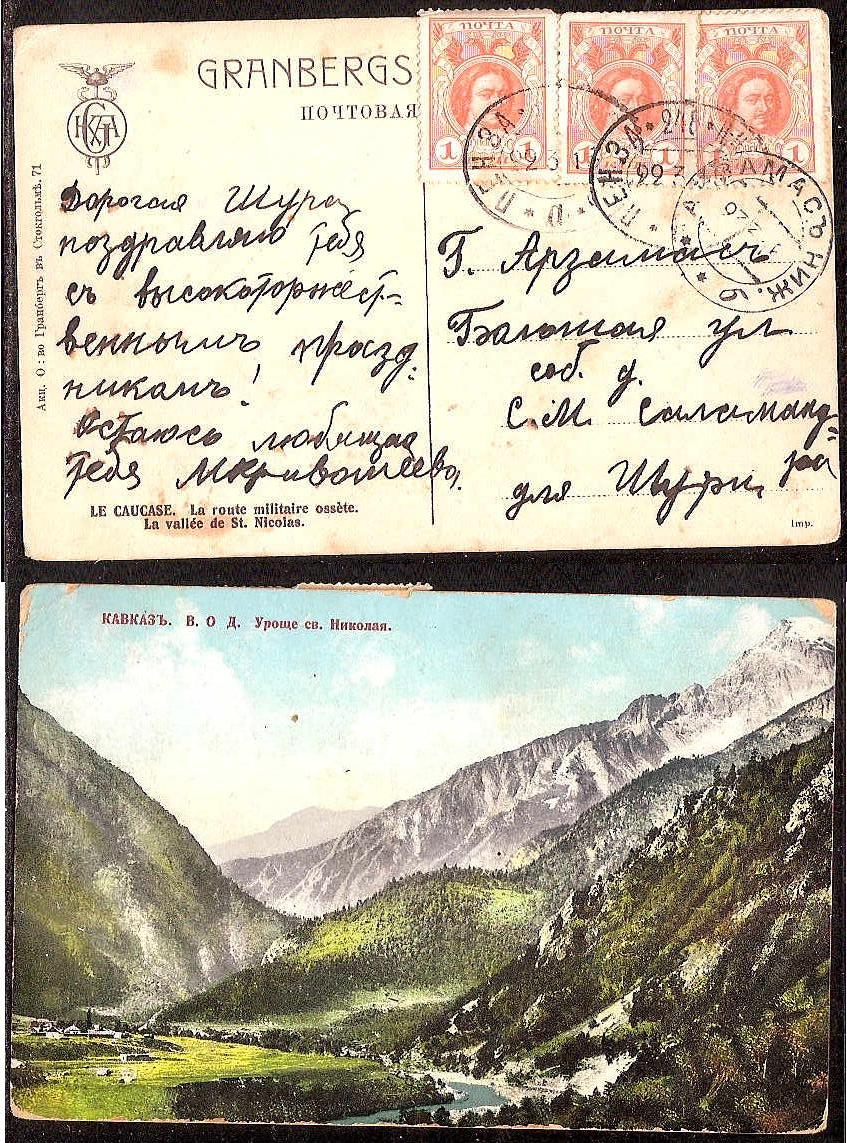 GRANBERGS
ПОЧТОВАЯ
ПОЧТА
ПОЧТА
ПОЧТА
1 1
1 1
1 1
ПЕНЗА
ПЕНЗА
АРЗАМАСЪ НИЖ.
Акц. О: во Гранбергъ въ Стокгольмѣ. 71
Дорогая Шура
поздравляю тебя
съ высокоторжест-
веннымъ празд-
никомъ!
Остаюсь любящая
тебя МКривошеева.
Г. Арзамасъ
ул
соб. д.
С. М. Саламанд-
ра
для Шуры
LE CAUCASE. La route militaire ossète.
La vallée de St. Nicolas.
Imp.
КАВКАЗЪ. В. О Д. Уроще св. Николая.